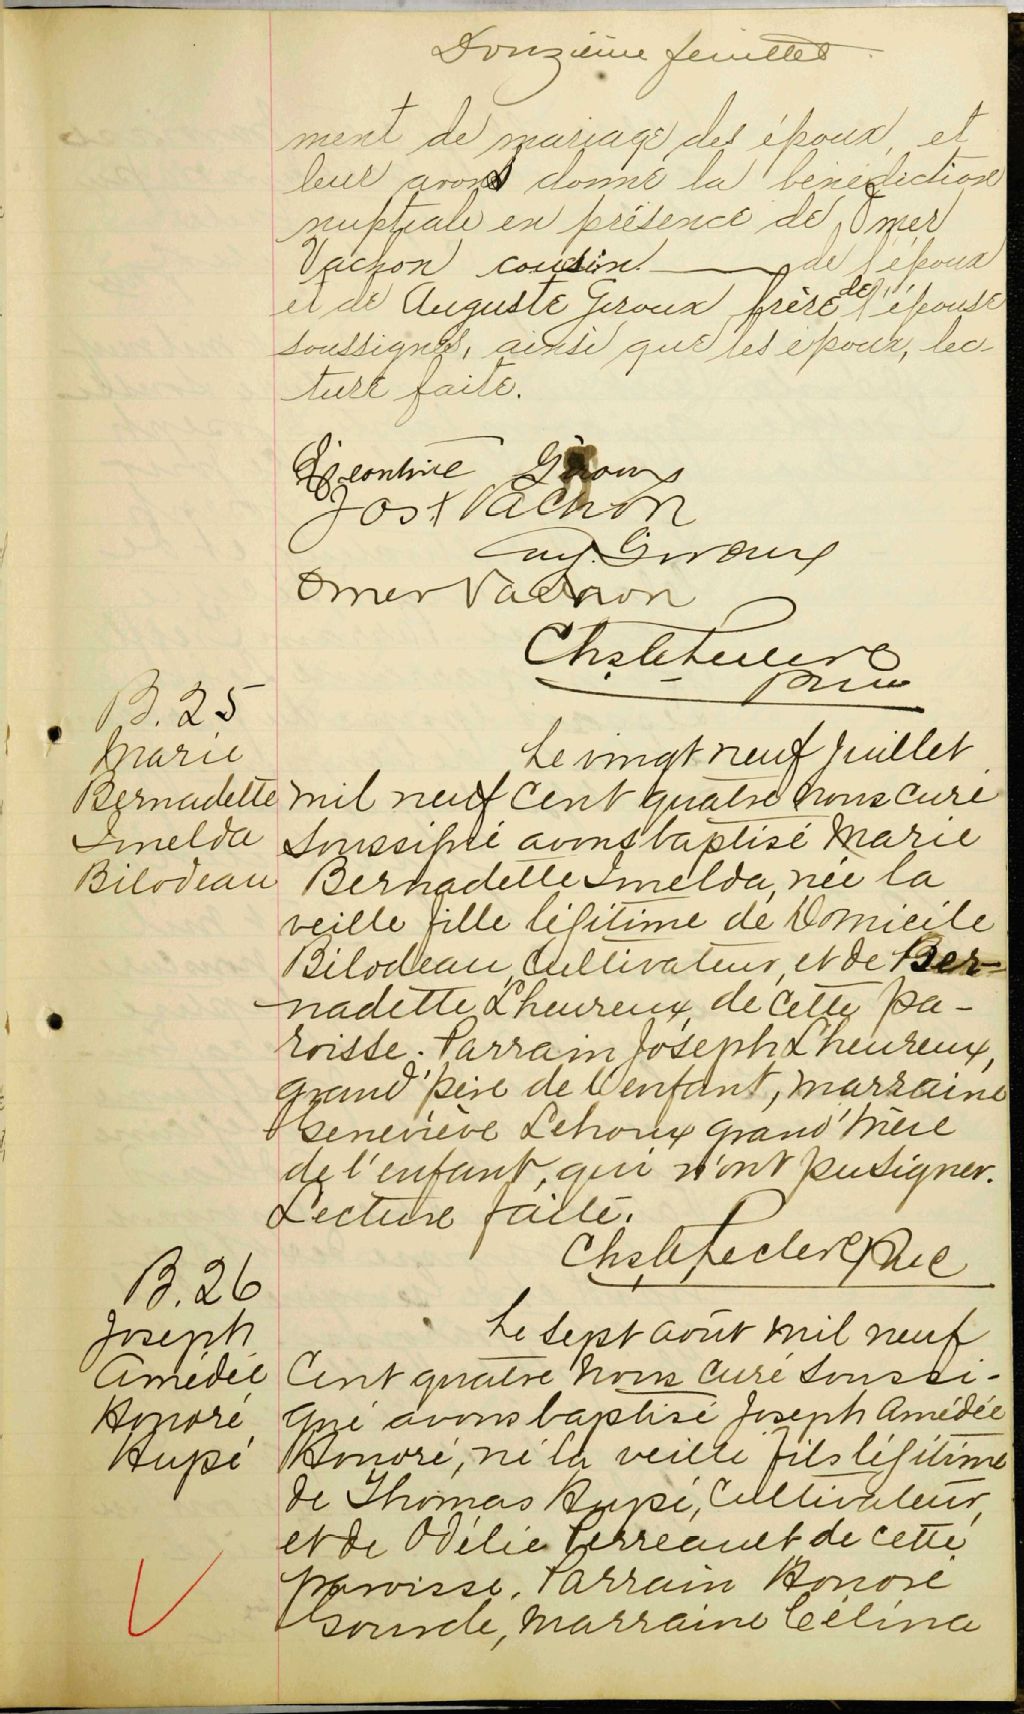 Douzième feuillet
ment de mariage des époux, et
leur avons donné la bénédiction
nuptiale en présence de Omer
Vachon cousin de l'époux
et de Auguste Giroux frère de l'épouse
soussignés, ainsi que les époux, lec-
ture faite.
Léontine Giroux
Jos Vachon
Aug. Giroux
Omer Vachon
Chs Ed Leclerc
Ptre
B. 25
Marie
Bernadette
Imelda
Bilodeau
Le vingt neuf Juillet
mil neuf cent quatre nous curé
soussigné avons baptisé Marie
Bernadette Imelda, née la
veille fille légitime de Domicile
Bilodeau, Cultivateur, et de Ber-
nadette L'heureux, de cette pa-
roisse. Parrain Joseph L'heureux,
grand'père de l'enfant, marraine
Geneviève Lehoux grand'mère
de l'enfant, qui n'ont pu signer.
Lecture faite.
Chs Ed Leclerc, Ptre
B. 26
Joseph
Amédée
Honoré
Hupé
Le sept août mil neuf
cent quatre nous curé soussi-
gné avons baptisé Joseph Amédée
Honoré, né la veille fils légitime
de Thomas Hupé, Cultivateur,
et de Odélie Perreault de cette
paroisse. Parrain Honoré
marraine Célina